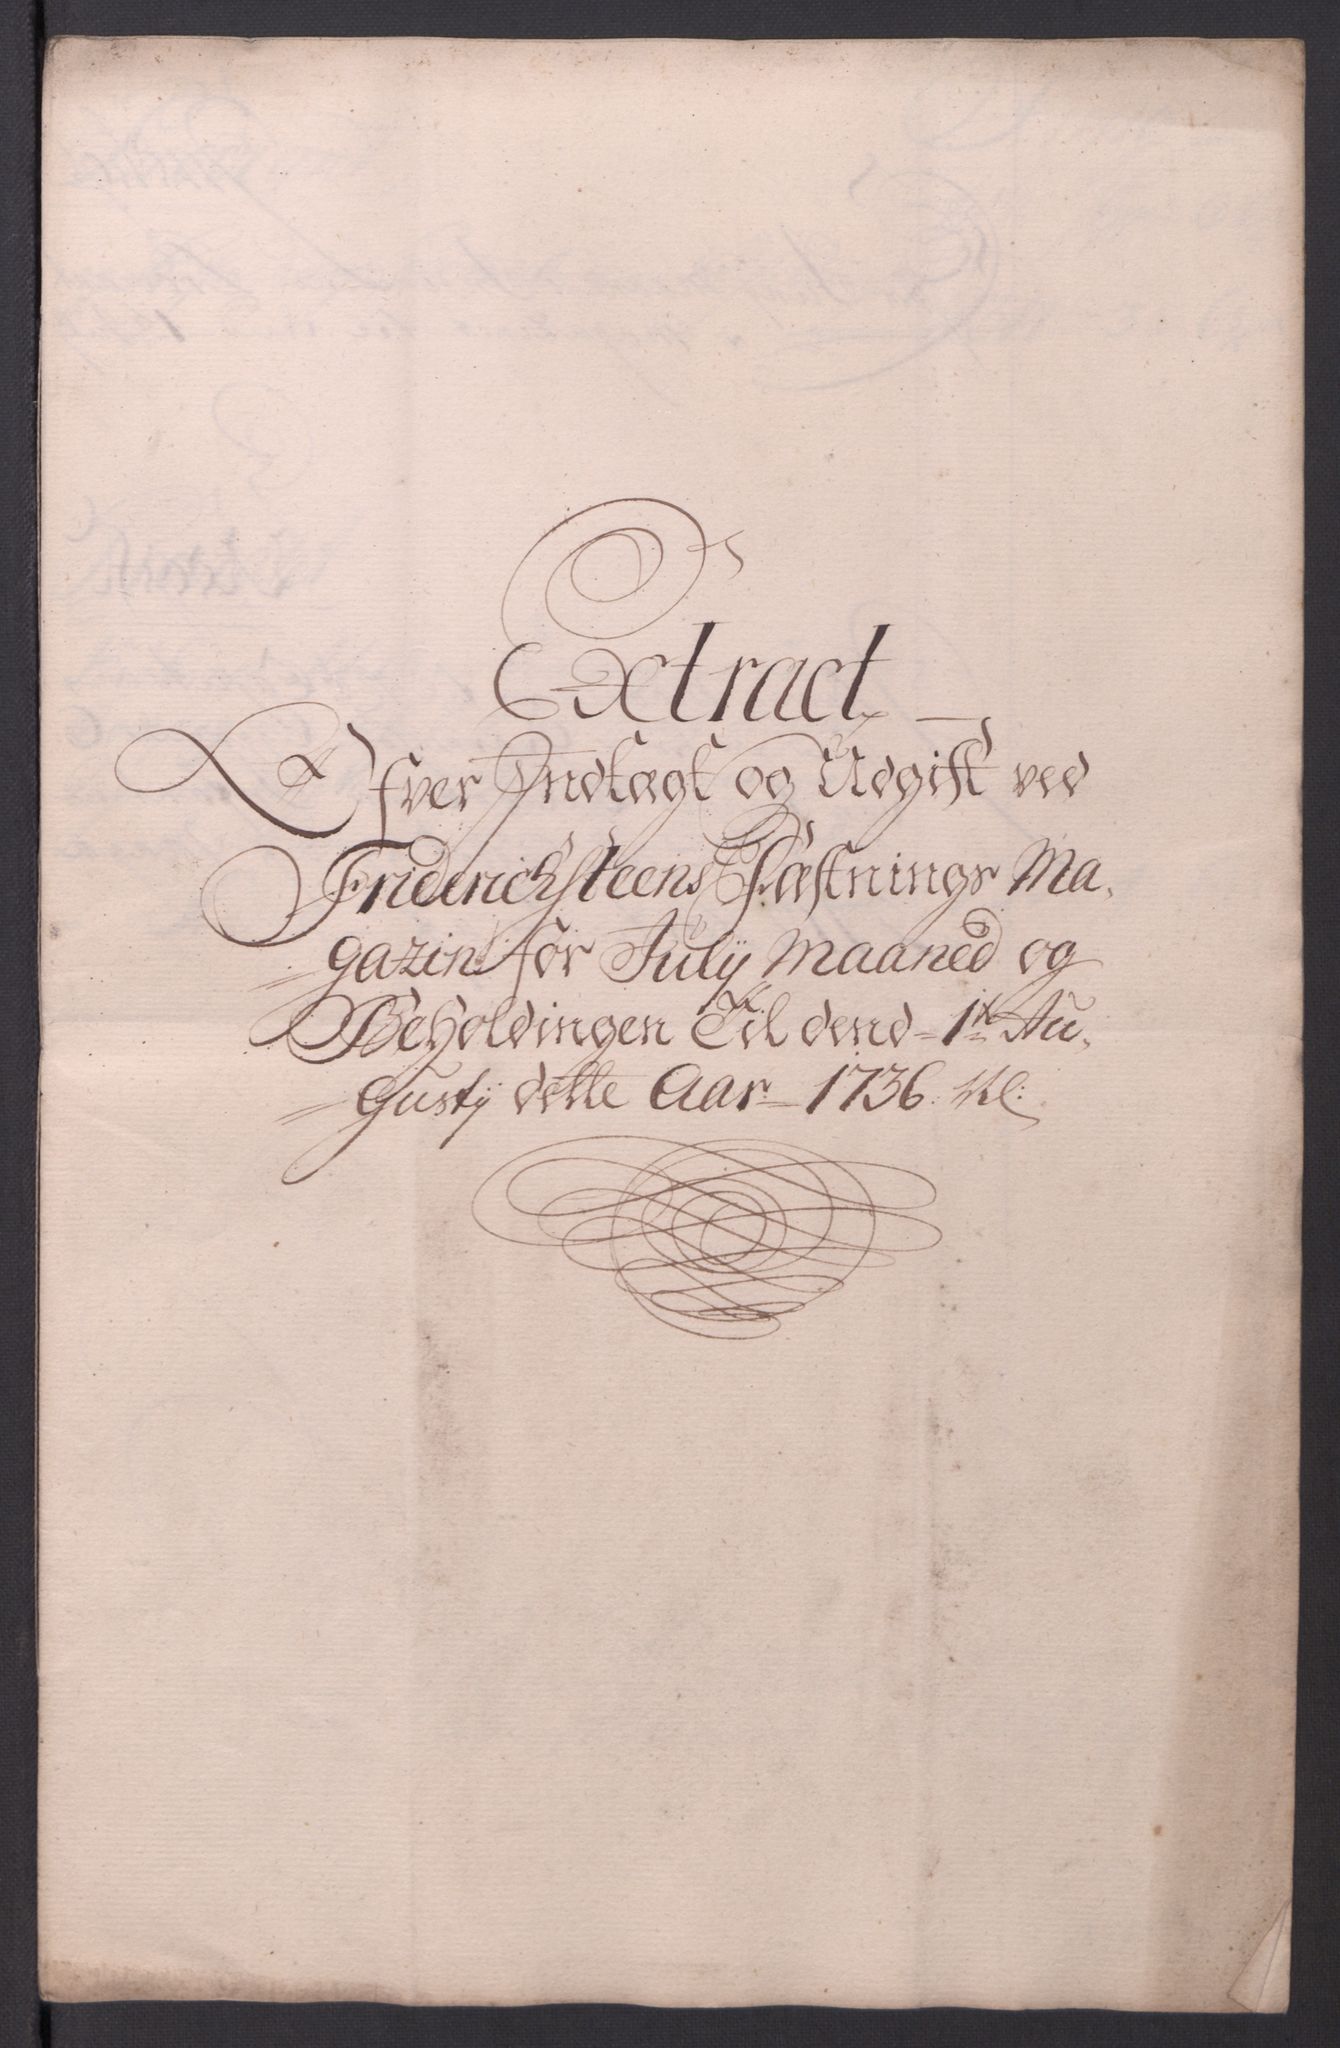 Extract
Ofver Indtægt og Udgift ved
Friderichsteens Fæstnings Ma,
gazin for Julij Maaned og
Beholdingen Til dend 1ste Au,
gustij dette Aar 1736